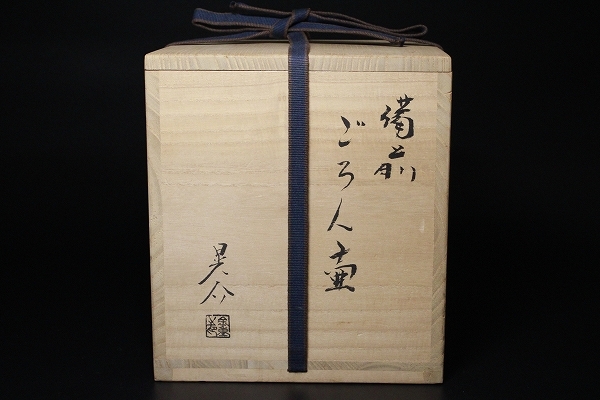 備前
ごろん壷
晃介